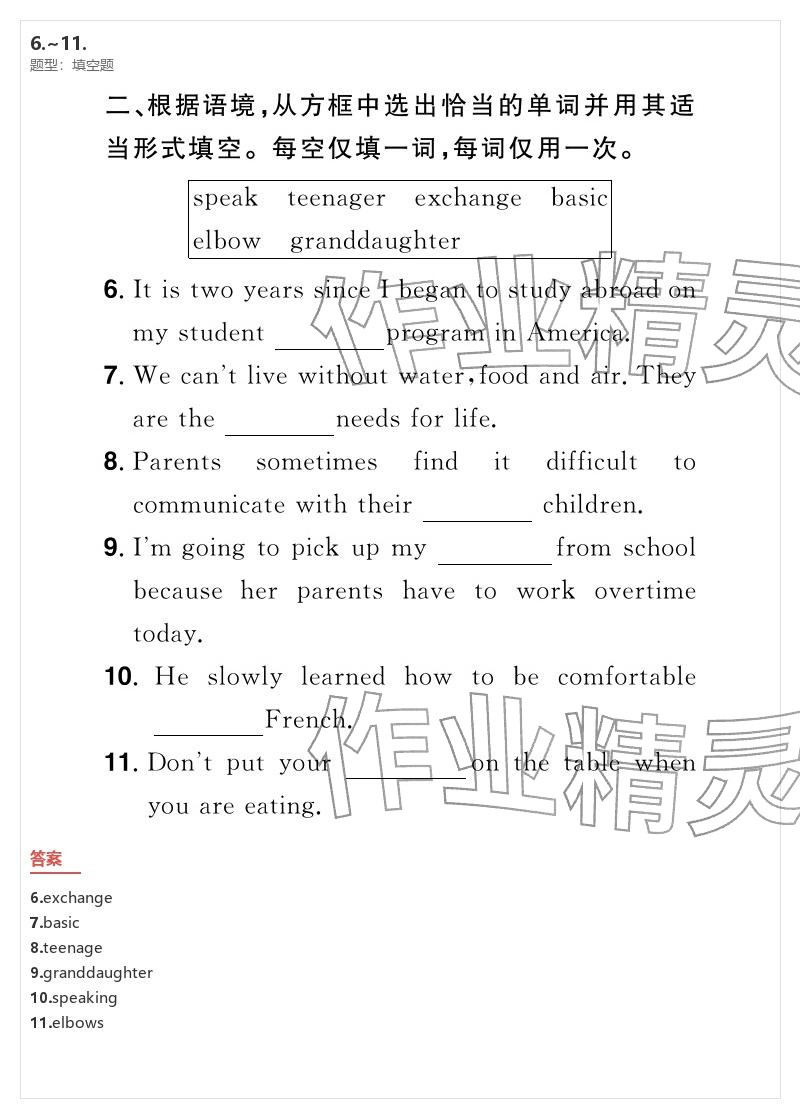 6.~11.
题型：填空题
二、根据语境,从方框中选出恰当的单词并用其适
当形式填空。每空仅填一词,每词仅用一次。
speak teenager exchange basic
elbow granddaughter
6. It is two years since I began to study abroad on
my student ________ program in America.
7. We can't live without water,food and air. They
are the ________ needs for life.
8. Parents sometimes find it difficult to
communicate with their ________ children.
9. I'm going to pick up my ________ from school
because her parents have to work overtime
today.
10. He slowly learned how to be comfortable
________ French.
11. Don't put your ________ on the table when
you are eating.
作业精灵
作业精灵
答案
6.exchange
7.basic
8.teenage
9.granddaughter
10.speaking
11.elbows